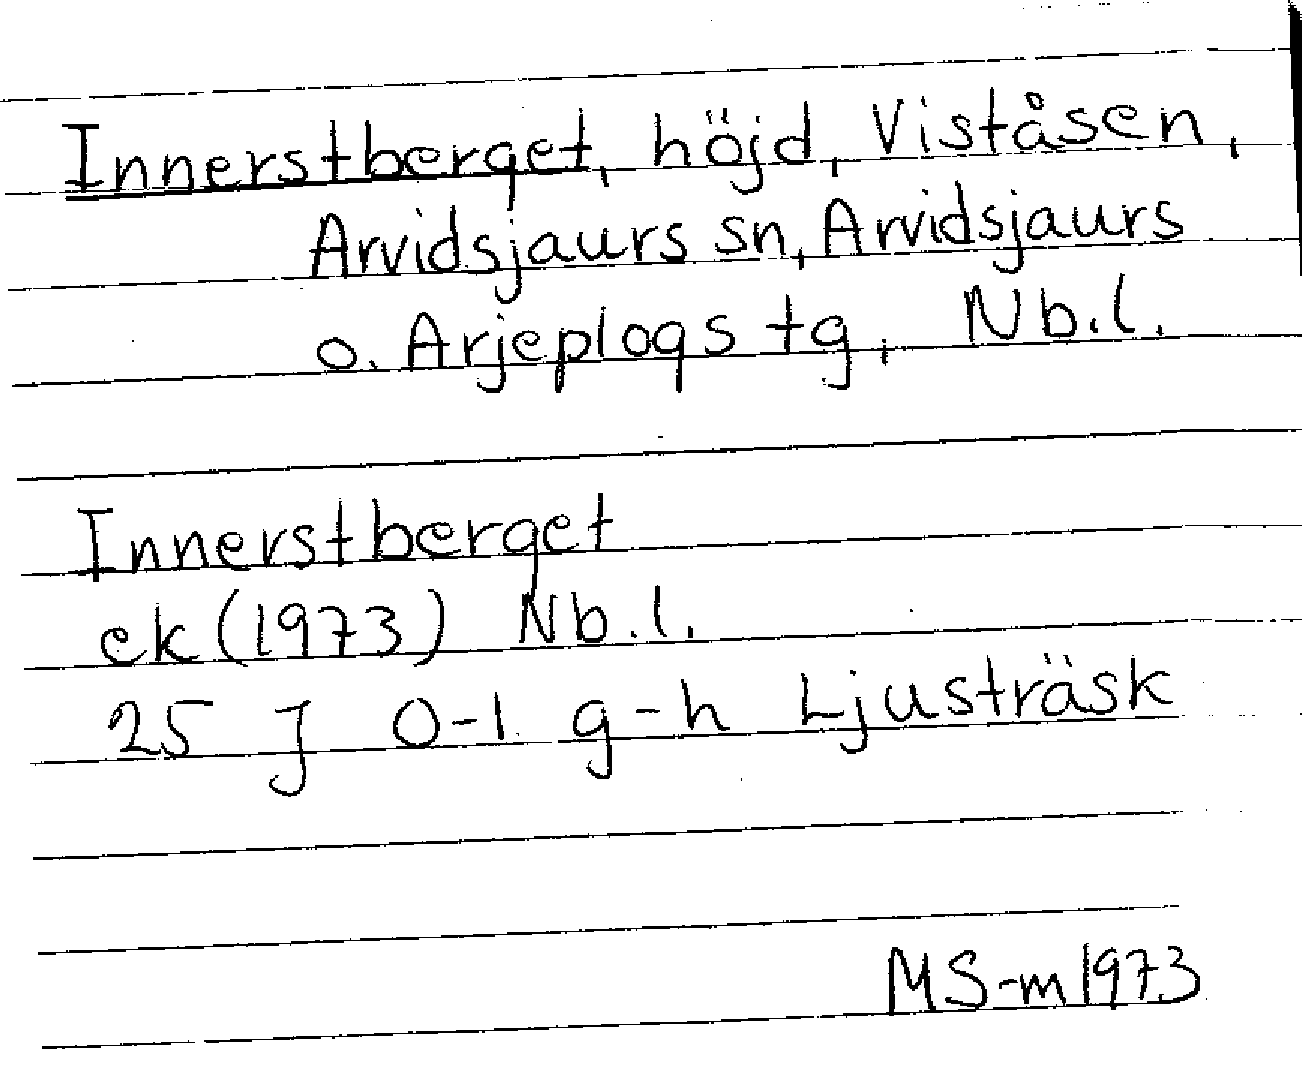 Innerstberget, höjd, Viståsen,
Arvidsjaurs sn, Arvidsjaurs
o. Arjeplogs tg, Nb.l.
Innerstberget
ek (1973) Nb.l.
25 J 0-1 g-h Ljusträsk
MS-m 1973